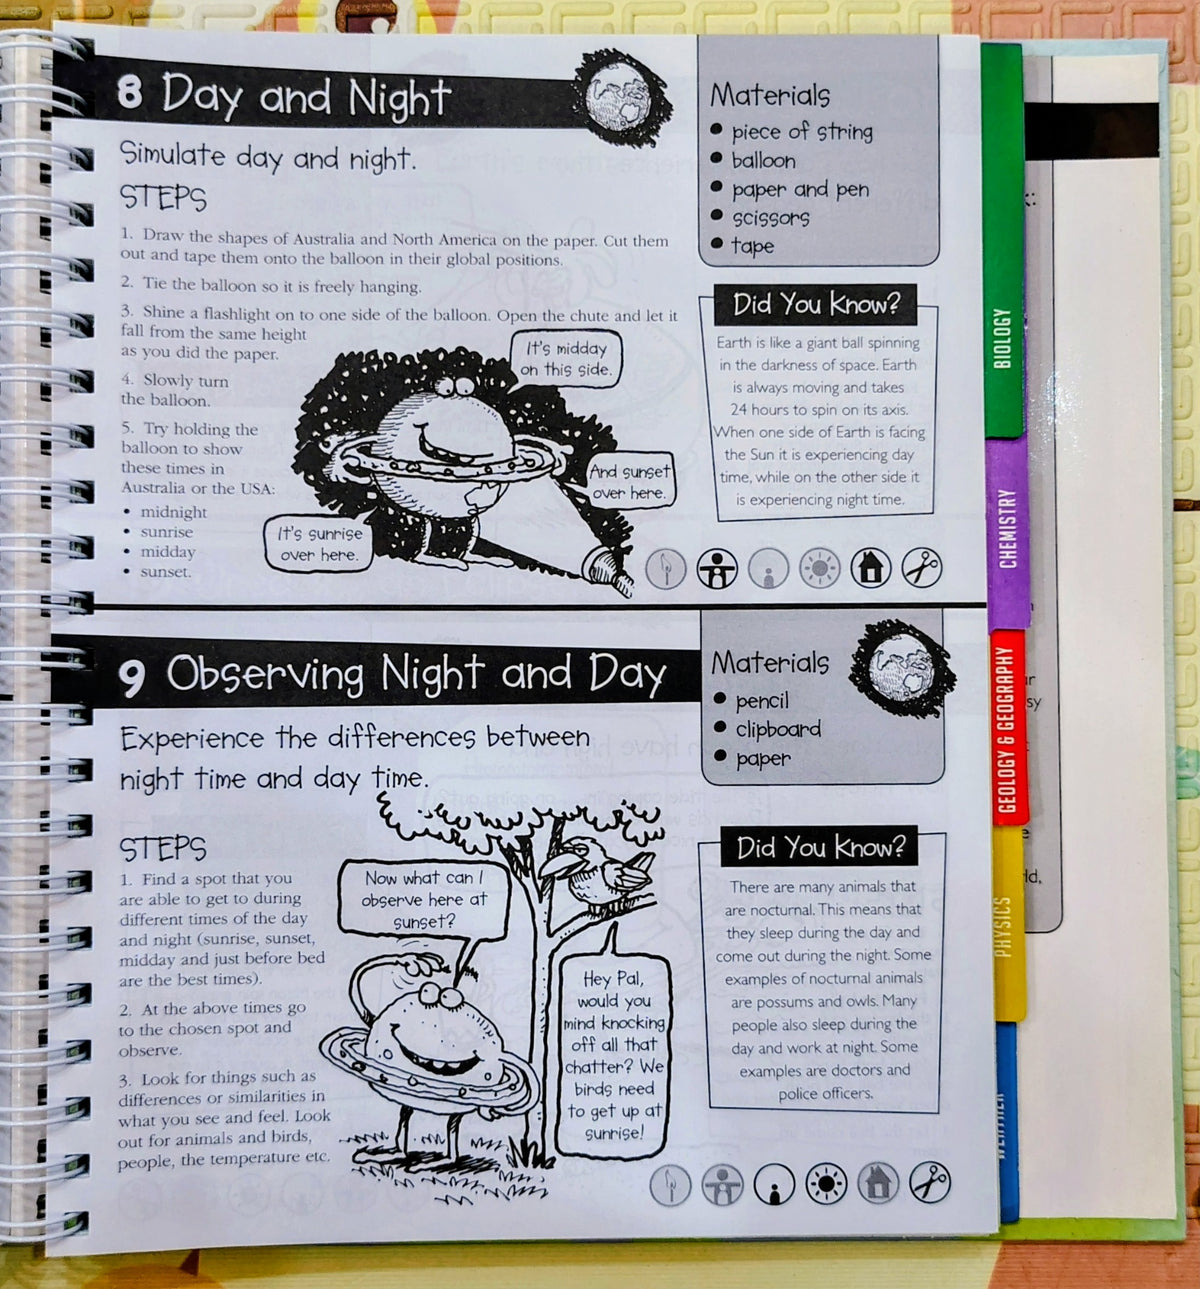 8 Day and Night
Simulate day and night.
STEPS
1. Draw the shapes of Australia and North America on the paper. Cut them
out and tape them onto the balloon in their global positions.
2. Tie the balloon so it is freely hanging.
3. Shine a flashlight on to one side of the balloon. Open the chute and let it
fall from the same height
as you did the paper.
4. Slowly turn
the balloon.
5. Try holding the
balloon to show
these times in
Australia or the USA:
• midnight
• sunrise
• midday
• sunset.
It's midday
on this side.
And sunset
over here.
It's sunrise
over here.
Materials
• piece of string
• balloon
• paper and pen
• scissors
• tape
Did You Know?
Earth is like a giant ball spinning
in the darkness of space. Earth
is always moving and takes
24 hours to spin on its axis.
When one side of Earth is facing
the Sun it is experiencing day
time, while on the other side it
is experiencing night time.
9 Observing Night and Day
Experience the differences between
night time and day time.
STEPS
1. Find a spot that you
are able to get to during
different times of the day
and night (sunrise, sunset,
midday and just before bed
are the best times).
2. At the above times go
to the chosen spot and
observe.
3. Look for things such as
differences or similarities in
what you see and feel. Look
out for animals and birds,
people, the temperature etc.
Now what can I
observe here at
sunset?
Hey Pal,
would you
mind knocking
off all that
chatter? We
birds need
to get up at
sunrise!
Materials
• pencil
• clipboard
• paper
Did You Know?
There are many animals that
are nocturnal. This means that
they sleep during the day and
come out during the night. Some
examples of nocturnal animals
are possums and owls. Many
people also sleep during the
day and work at night. Some
examples are doctors and
police officers.
BIOLOGY
CHEMISTRY
GEOLOGY & GEOGRAPHY
PHYSICS